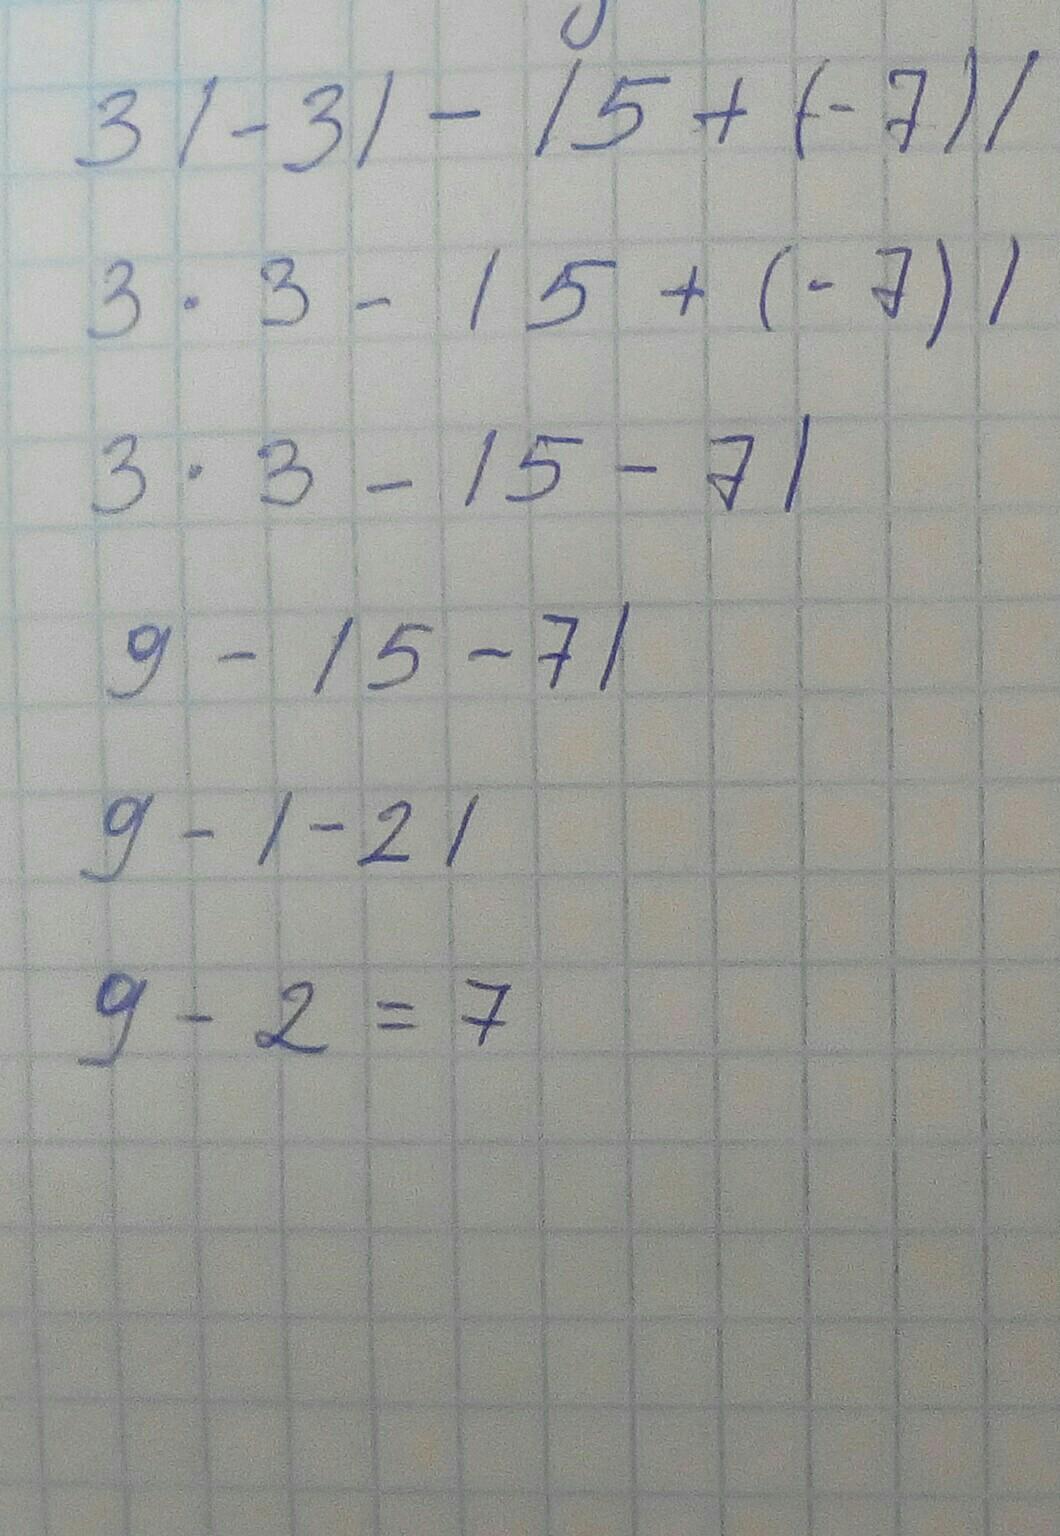 3|-3| - |5 + (-7)|
3 · 3 - |5 + (-7)|
3 · 3 - |5 - 7|
9 - |5 - 7|
9 - |-2|
9 - 2 = 7